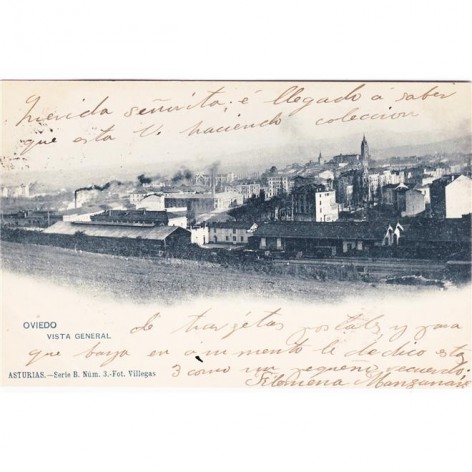 Querida señorita, é llegado á saber
que esta V. haciendo colección
de tarjetas postales y para
OVIEDO
VISTA GENERAL
que baya en aumento li dedico esta
3 como un pequeño recuerdo.
ASTURIAS.—Serie B. Núm. 3.-Fot. Villegas
Filomena Manzanás